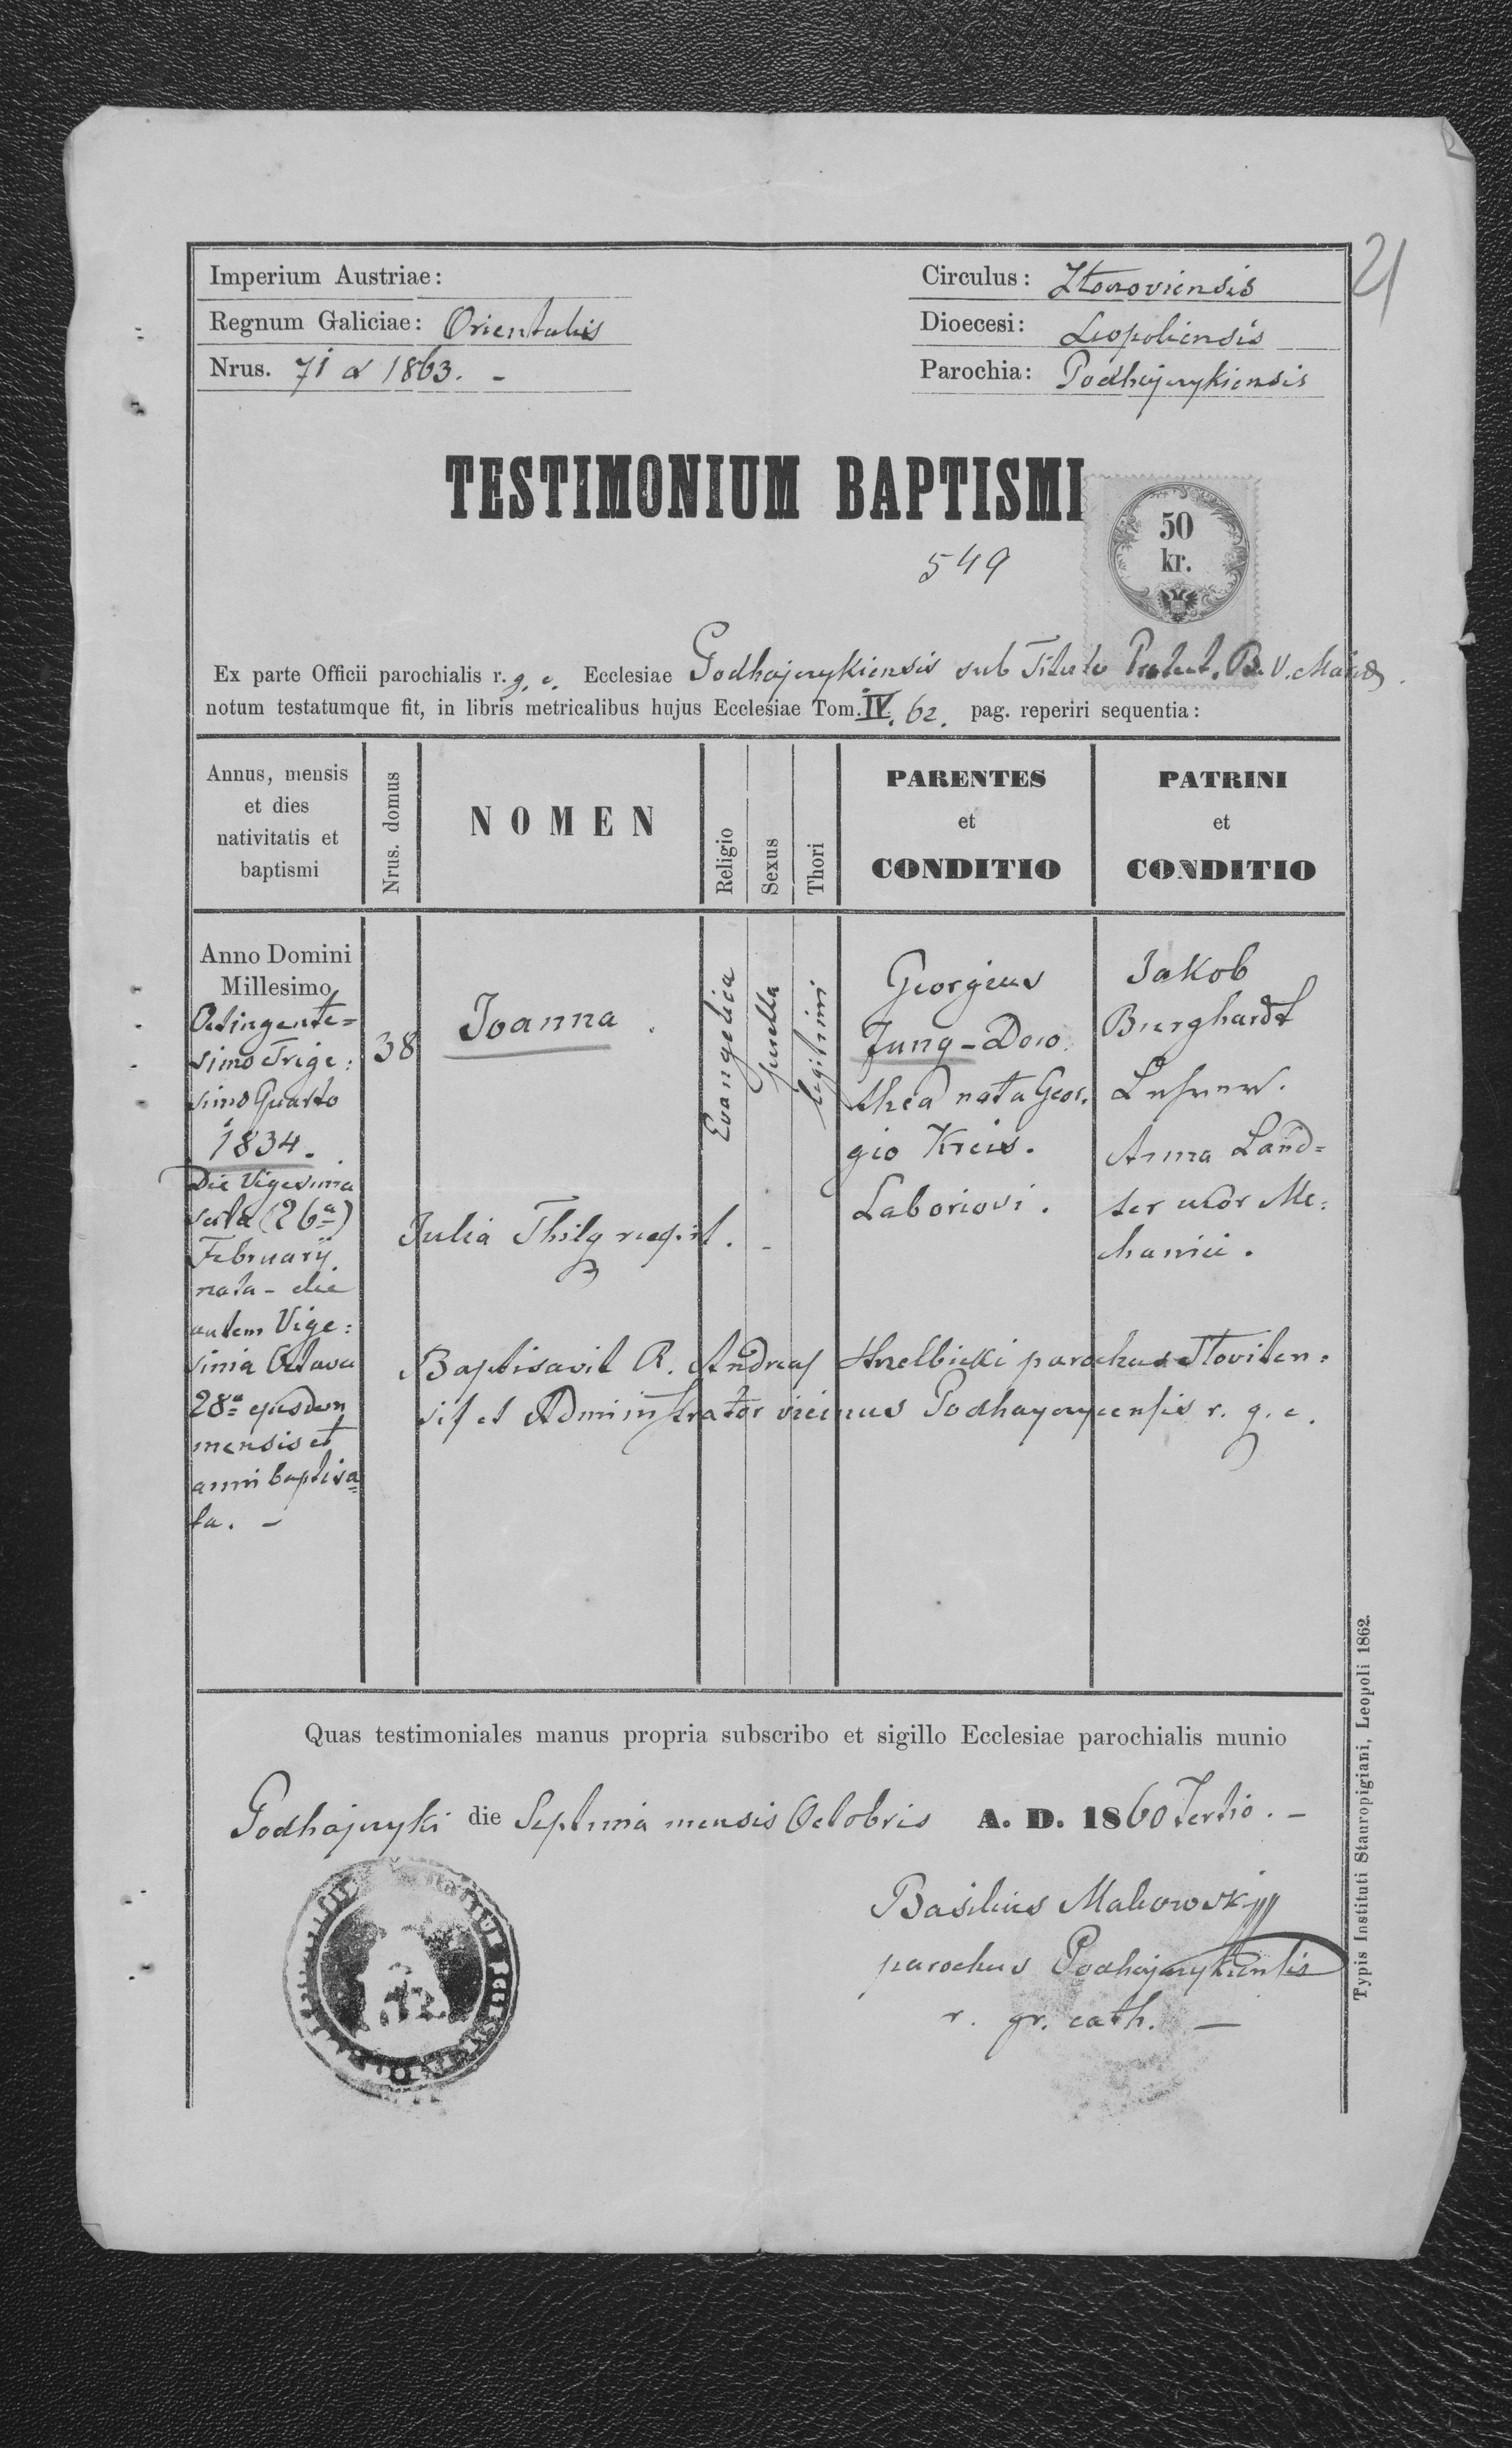 21
Imperium Austriae:
Circulus: Złoczoviensis
Regnum Galiciae: Orientalis
Dioecesi: Leopoliensis
Nrus. 71 a 1863. -
Parochia: Podhajczykiensis
TESTIMONIUM BAPTISMI
50
kr.
549
Ex parte Officii parochialis r. g. c. Ecclesiae Podhajczykiensis sub Titulo B. V. Mariae
notum testatumque fit, in libris metricalibus hujus Ecclesiae Tom. IV. 62. pag. reperiri sequentia:
Annus, mensis
et dies
nativitatis et
baptismi
Nrus. domus
NOMEN
Religio
Sexus
Thori
PARENTES
et
CONDITIO
PATRINI
et
CONDITIO
Anno Domini
Millesimo
Octingente=
simo Trige:
simo Quarto
1834.
Die Vigesima
sexta (26a)
Februarij
nata - die
autem Vige:
sima Octava
28a ejusdem
mensis et
anni baptisa=
ta. -
38
Joanna
Evangelica
puella
legitimi
Georgius
Jung - Doro
thea nata Geor.
gio Kreis.
Laboriosi.
Jakob
Burghardt
Lehrer.
Anna Land=
ter uxor Me:
chanici.
Julia Thilg
Baptisavit R. Andreas parochus
sis et Administrator vicinus Podhayczycensis r. g. c.
Quas testimoniales manus propria subscribo et sigillo Ecclesiae parochialis munio
Podhajczyki die Septima mensis Octobris A. D. 1860 Tertio. -
Basilius
parochus Podhajczykiensis
r. gr. cath. -
Typis Instituti Stauropigiani, Leopoli 1862.